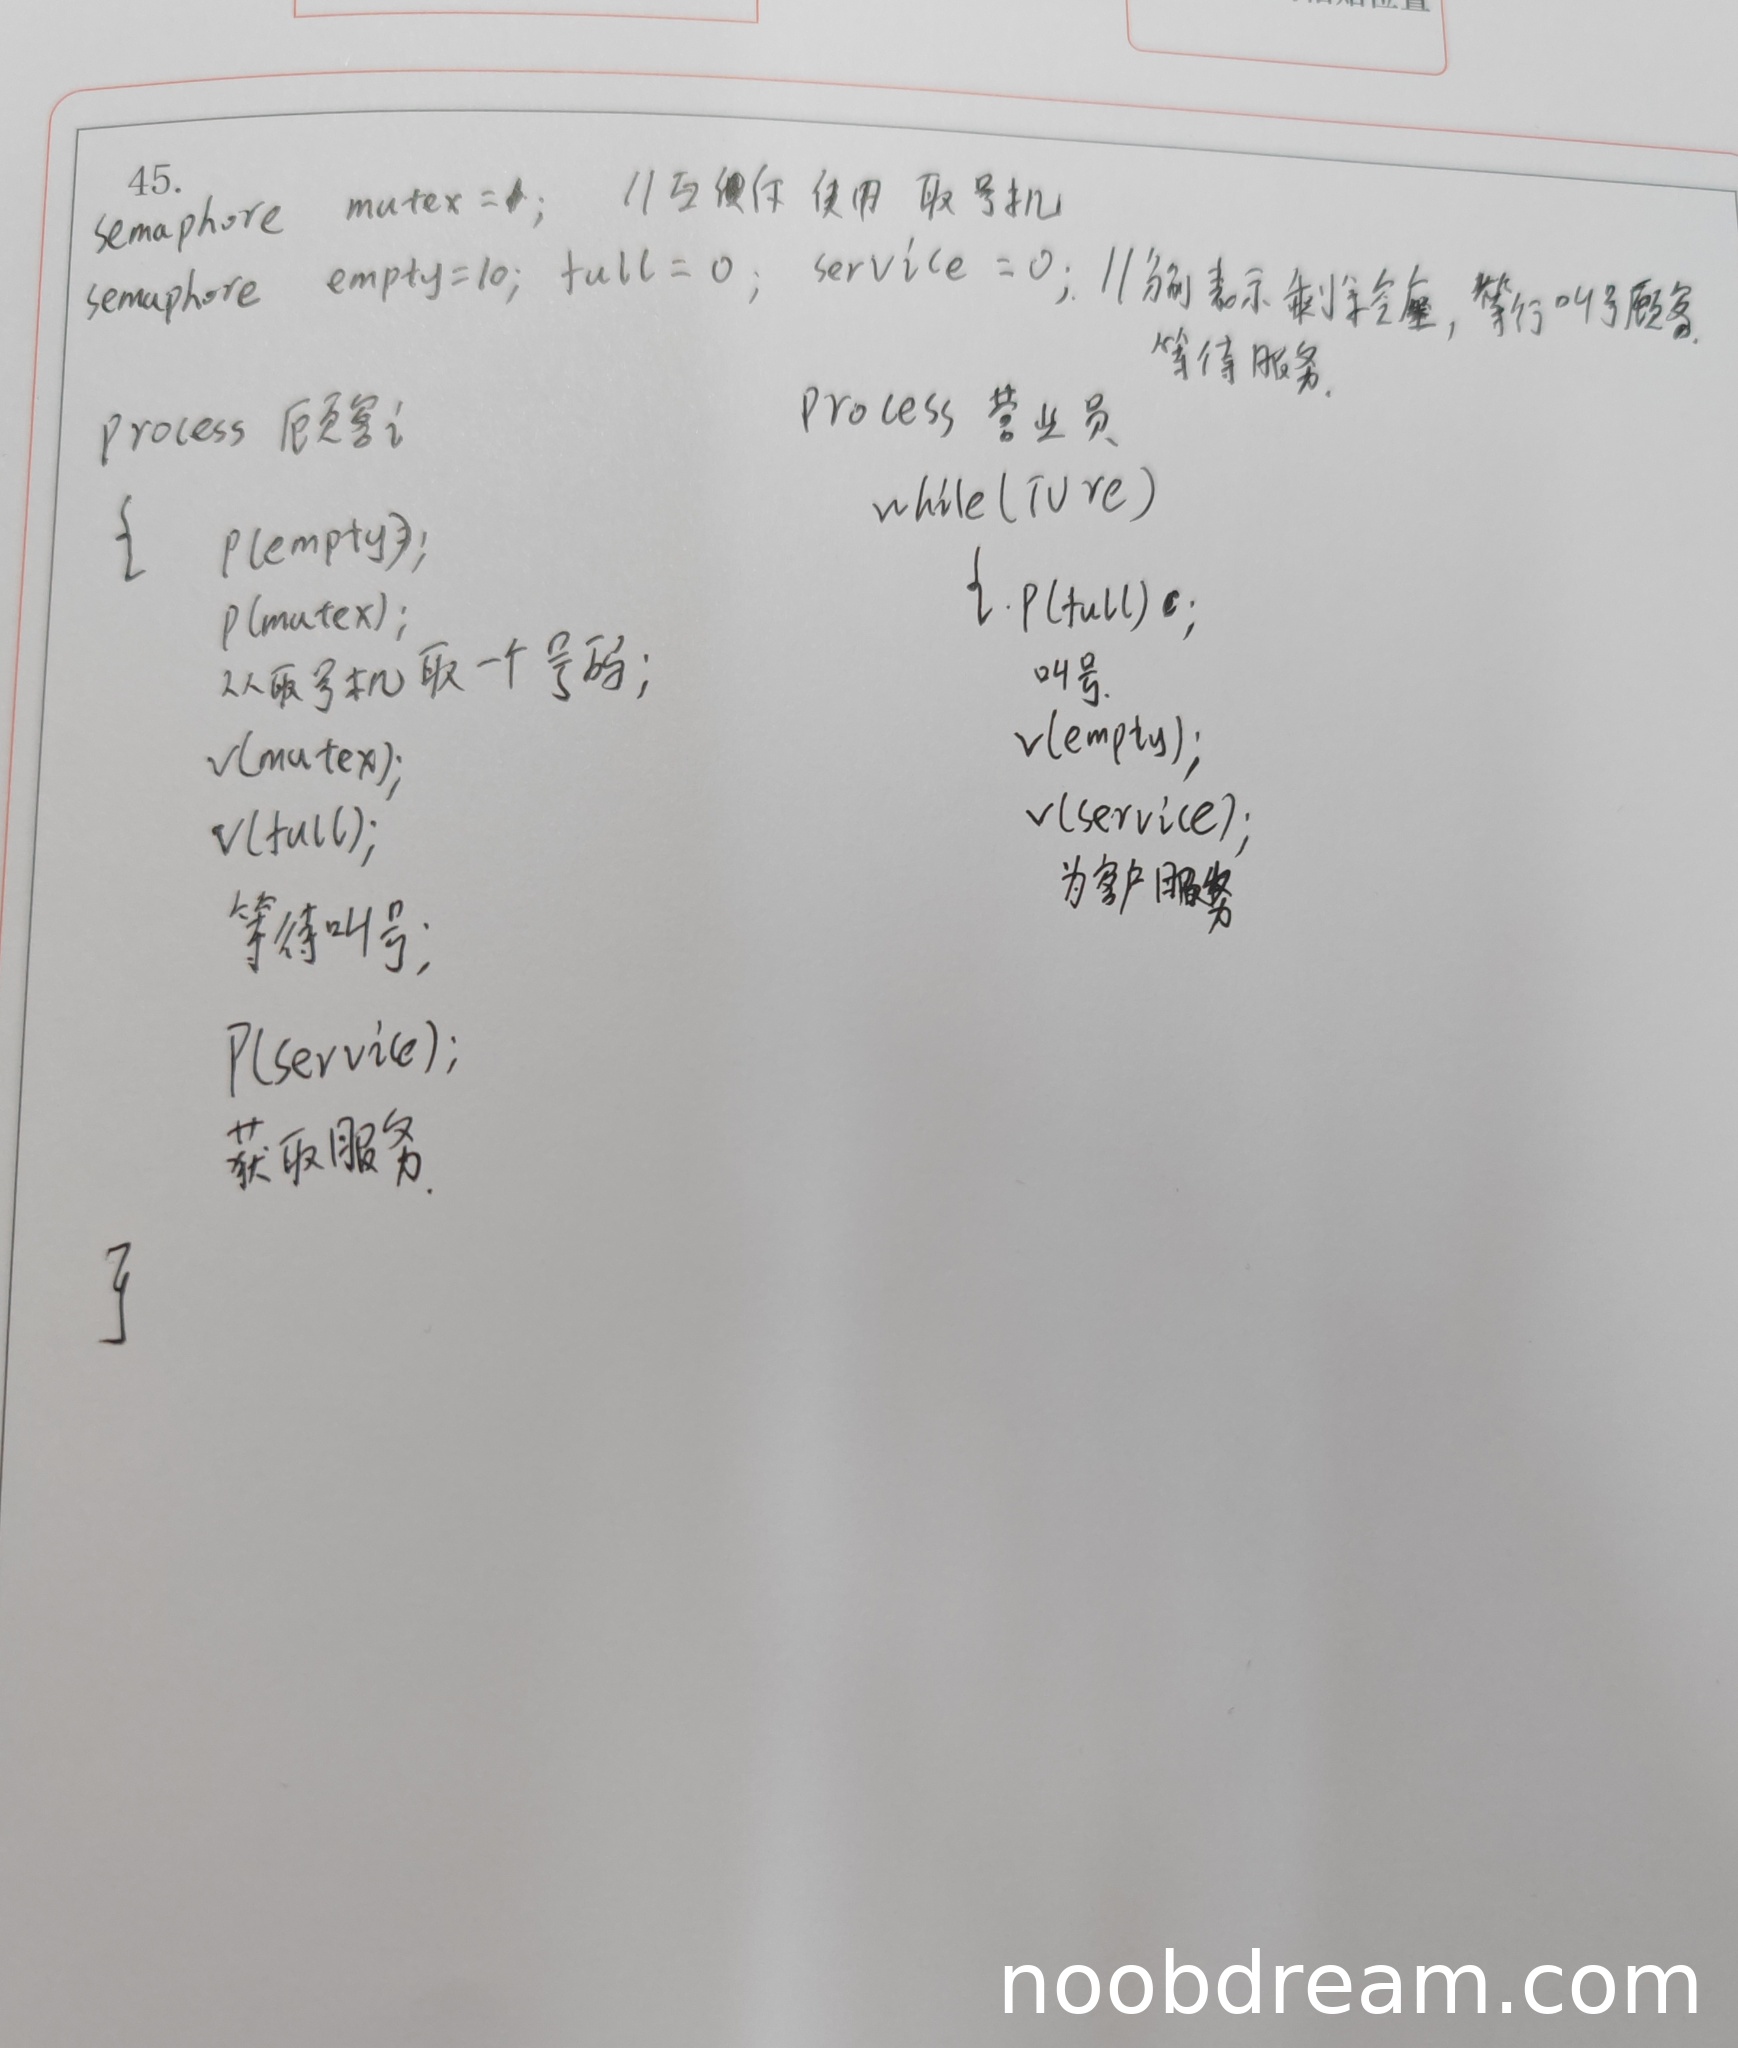 45.
semaphore mutex = 1; // 使用 取号机
semaphore empty=10; full = 0; service = 0; // 分别表示剩余空座, 等待叫号顾客.
等待服务.
process 顾客i
{ P(empty);
P(mutex);
从取号机取一个号码;
v(mutex);
v(full);
等待叫号;
P(service);
获取服务.
}
process 营业员
while(Ture)
{ P(full);
叫号.
v(empty);
v(service);
为客户服务
noobdream.com